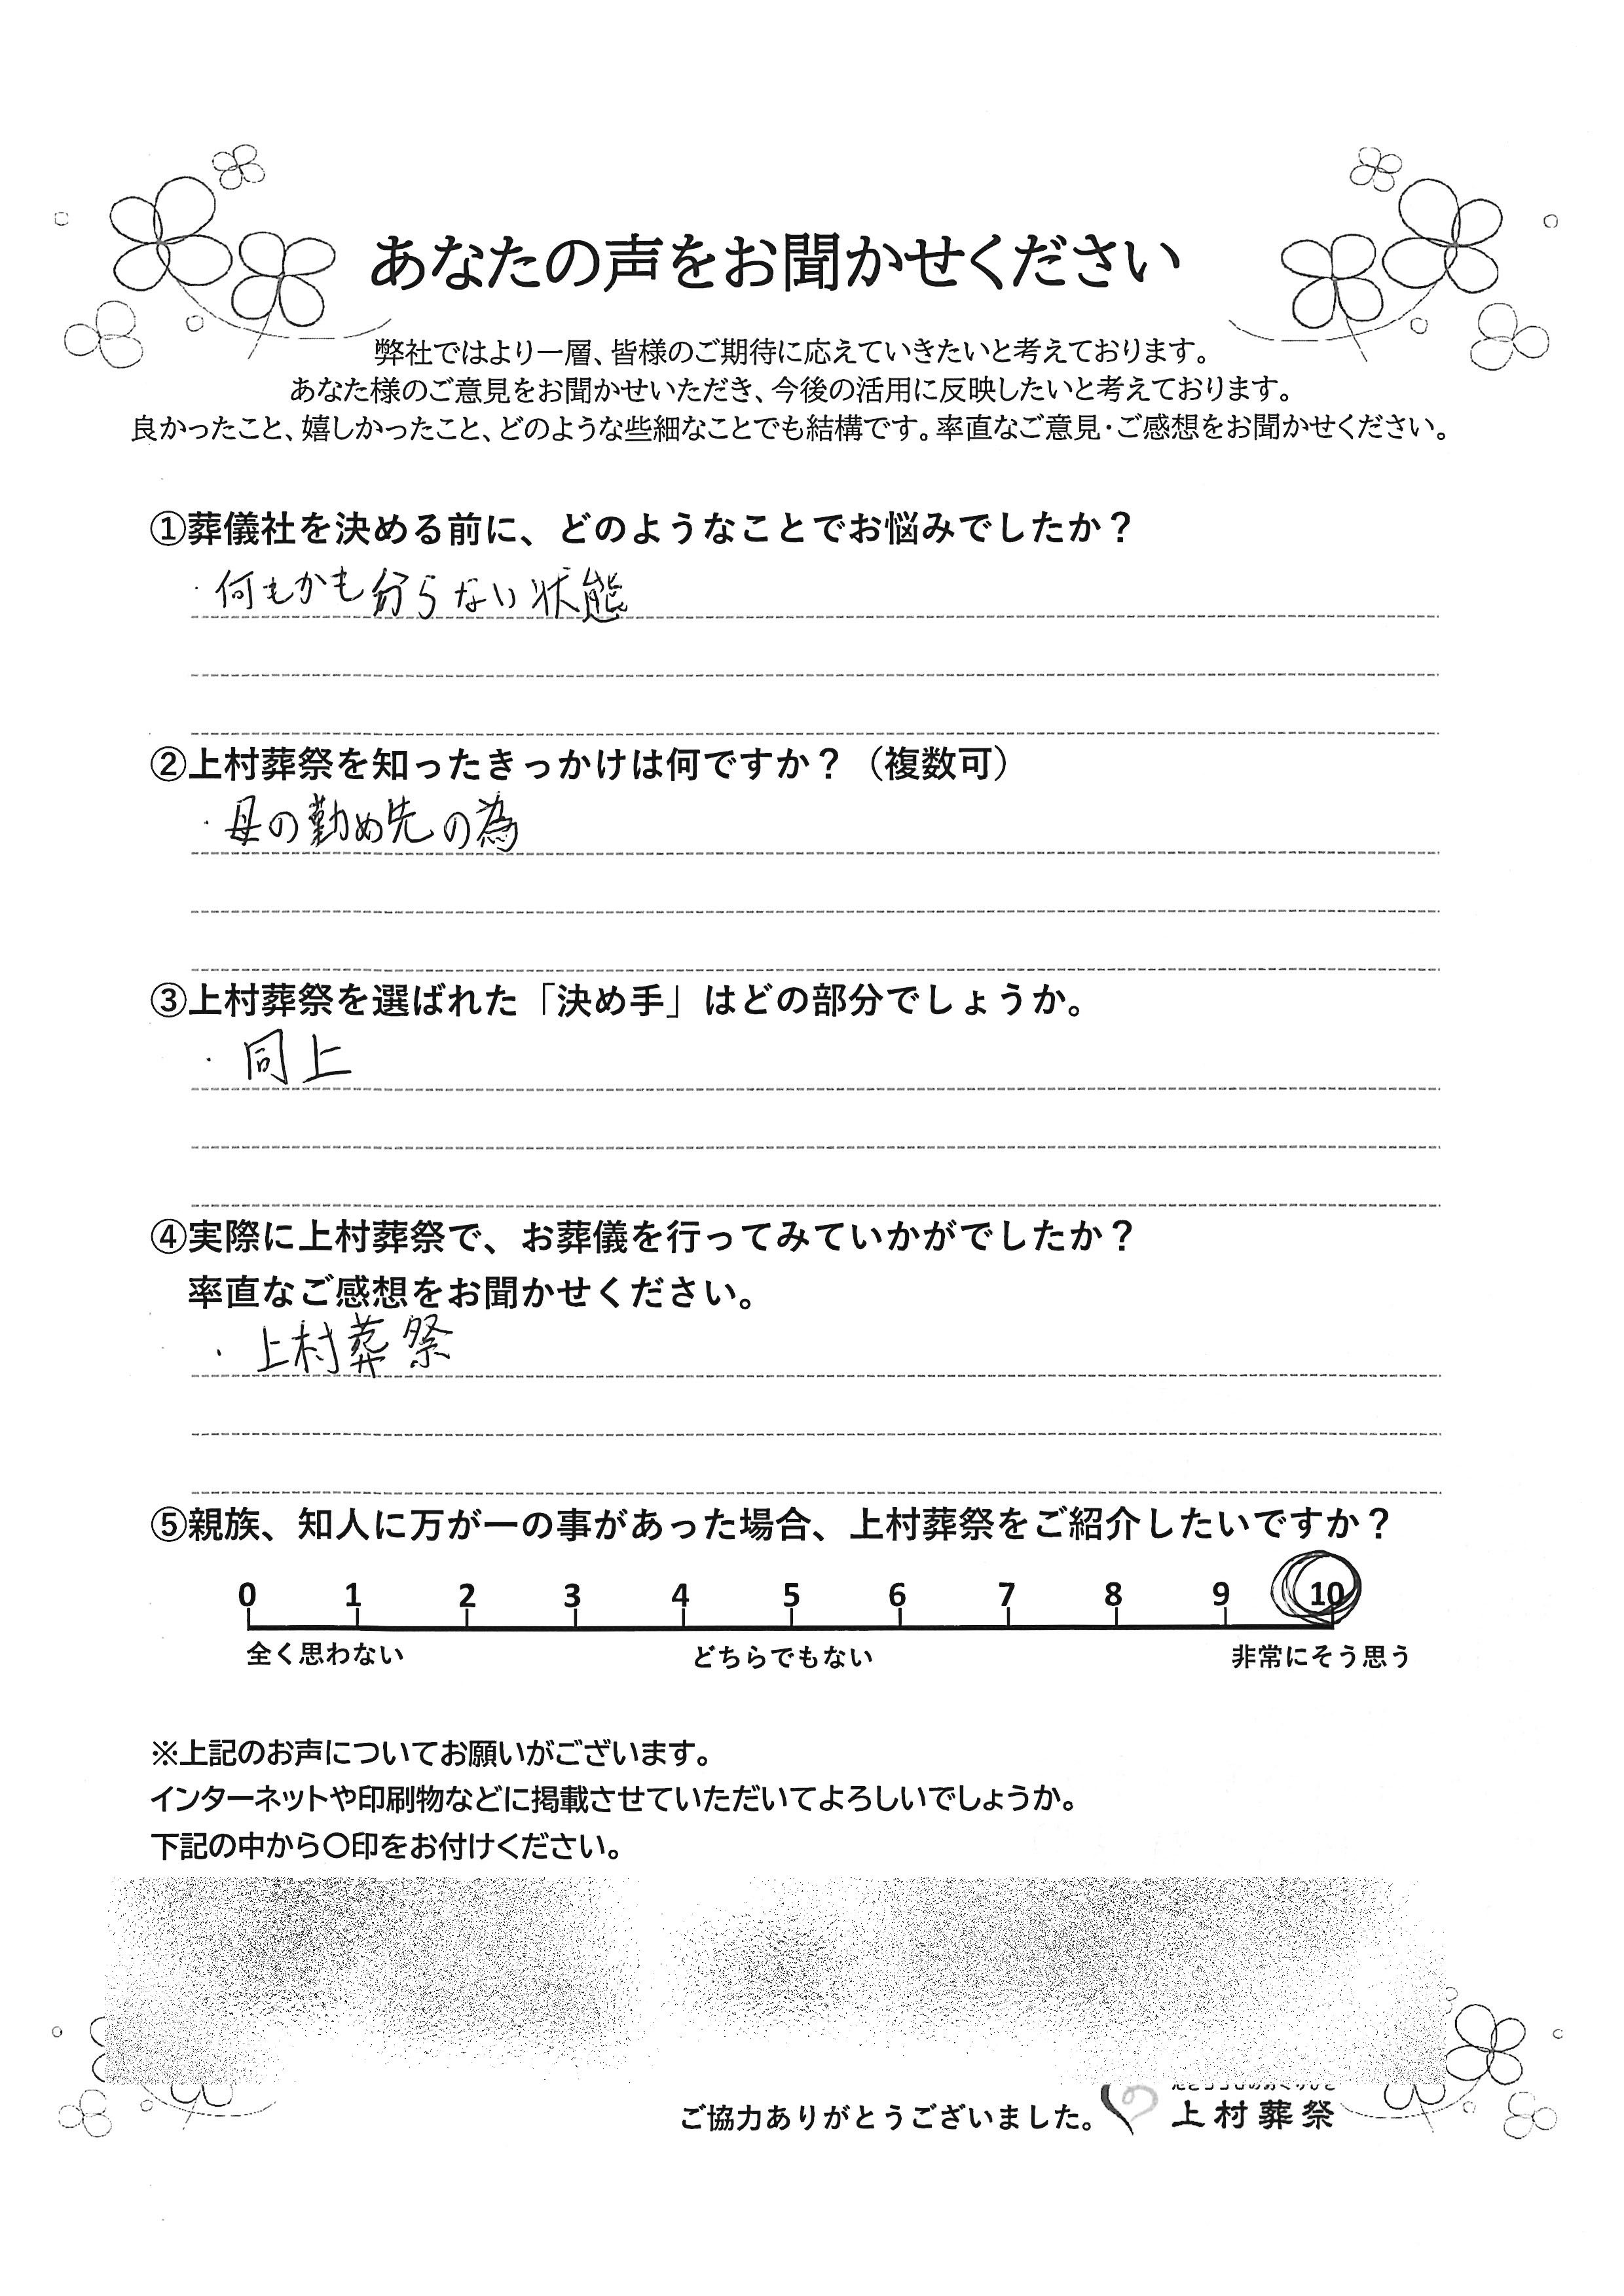 あなたの声をお聞かせください
弊社ではより一層、皆様のご期待に応えていきたいと考えております。
あなた様のご意見をお聞かせいただき、今後の活用に反映したいと考えております。
良かったこと、嬉しかったこと、どのような些細なことでも結構です。率直なご意見・ご感想をお聞かせください。
①葬儀社を決める前に、どのようなことでお悩みでしたか？
・何もかも分らない状態
②上村葬祭を知ったきっかけは何ですか？（複数可）
・母の勤め先の為
③上村葬祭を選ばれた「決め手」はどの部分でしょうか。
・同上
④実際に上村葬祭で、お葬儀を行ってみていかがでしたか？
率直なご感想をお聞かせください。
・上村葬祭
⑤親族、知人に万が一の事があった場合、上村葬祭をご紹介したいですか？
0 1 2 3 4 5 6 7 8 9 10
全く思わない どちらでもない 非常にそう思う
※上記のお声についてお願いがございます。
インターネットや印刷物などに掲載させていただいてよろしいでしょうか。
下記の中から〇印をお付けください。
ご協力ありがとうございました。 上村葬祭